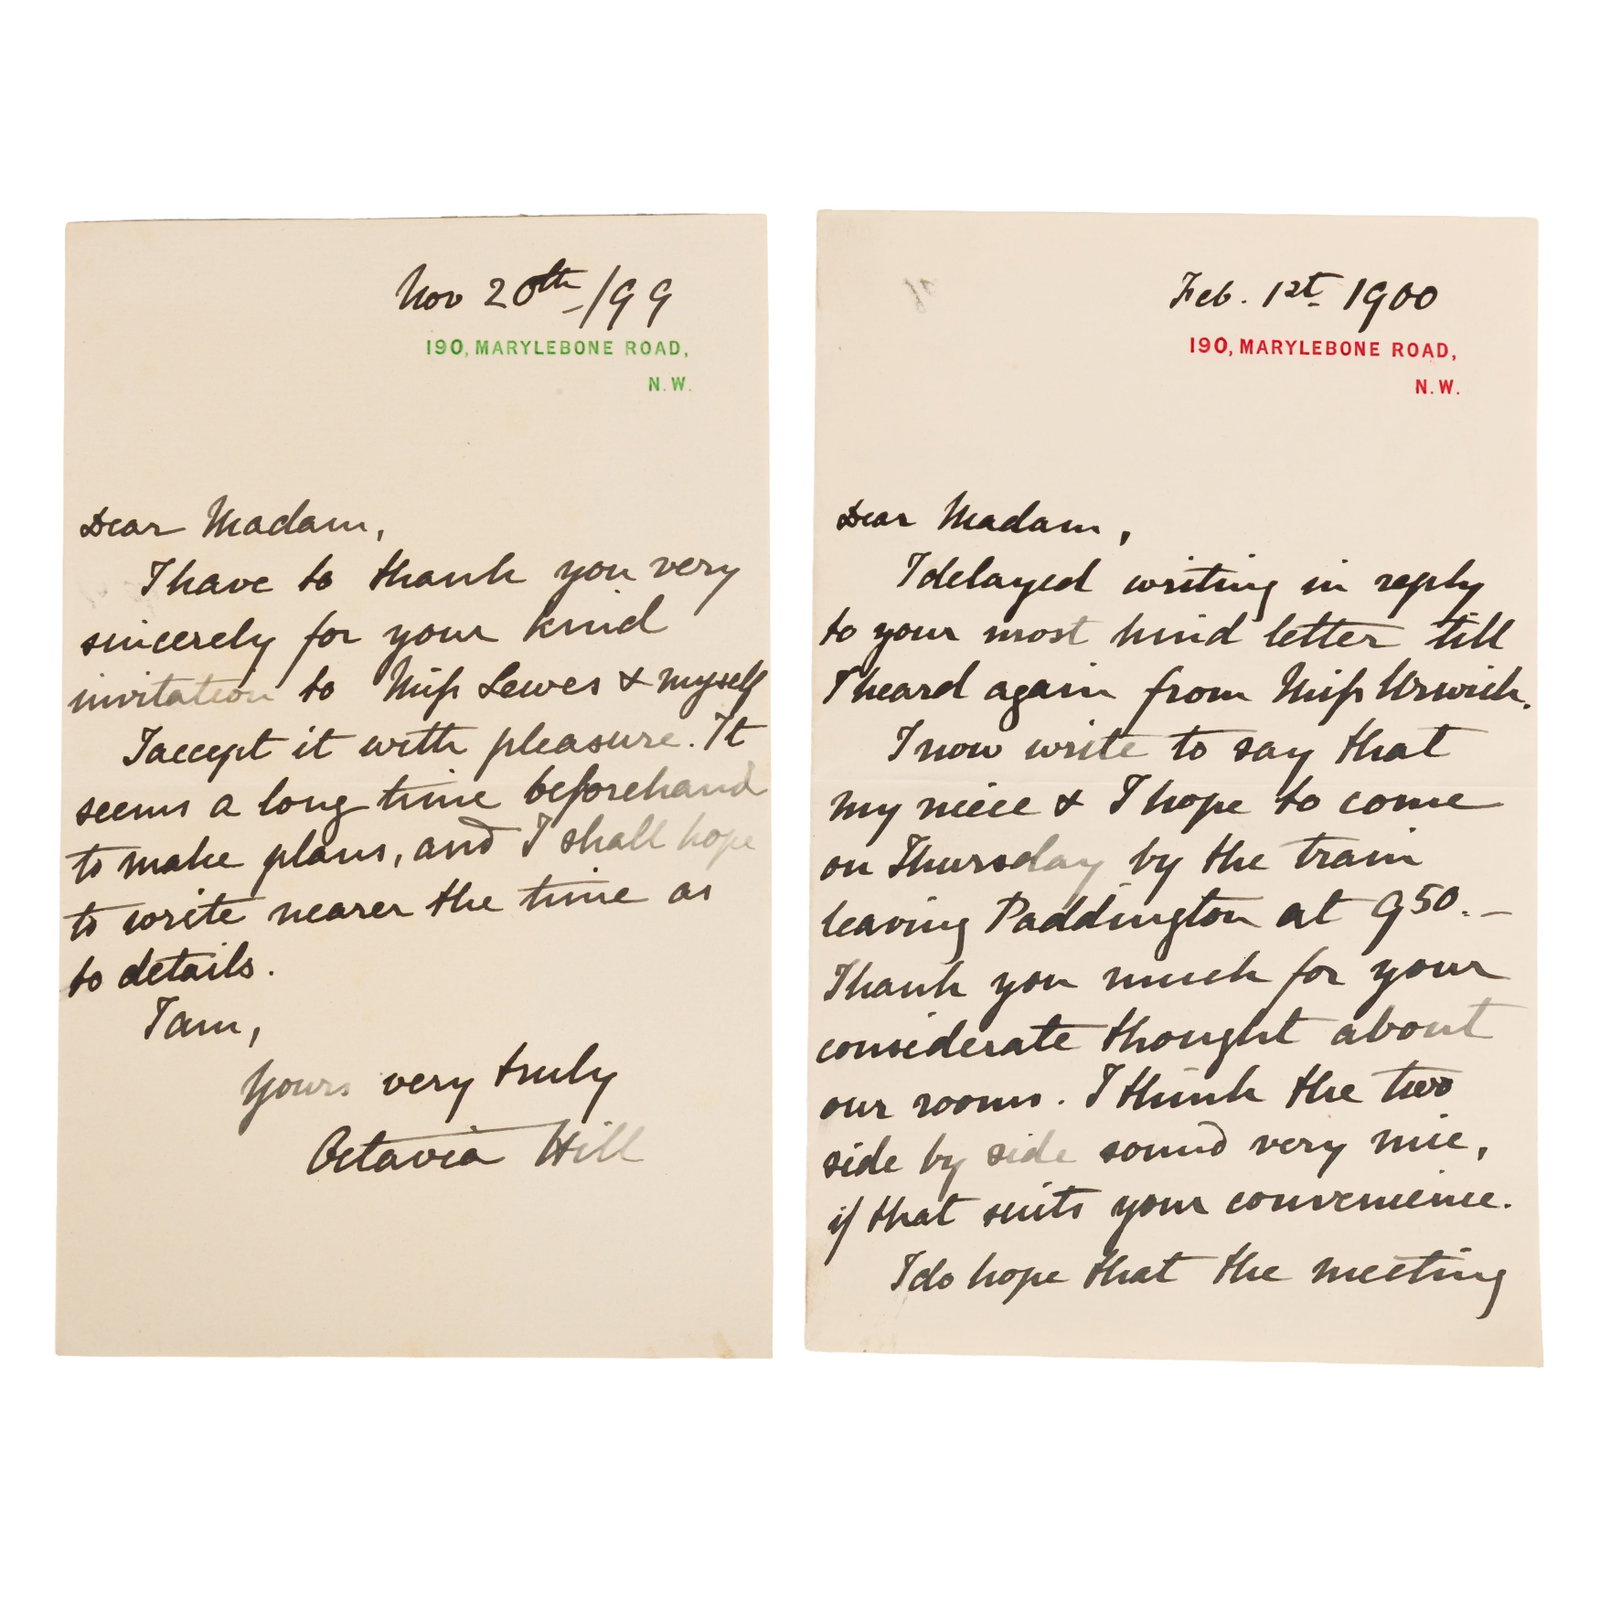 Nov 20th /99
190, MARYLEBONE ROAD,
N.W.
Dear Madam,
I have to thank you very
sincerely for your kind
invitation to Miss Lewes & myself
I accept it with pleasure. It
seems a long time beforehand
to make plans, and I shall hope
to write nearer the time as
to details.
I am,
Yours very truly
Octavia Hill
Feb. 1st 1900
190, MARYLEBONE ROAD,
N.W.
Dear Madam,
I delayed writing in reply
to your most kind letter till
I heard again from Miss Urwick.
I now write to say that
my niece & I hope to come
on Thursday by the train
leaving Paddington at 9 50. –
Thank you much for your
considerate thought about
our rooms. I think the two
side by side sound very nice,
if that suits your convenience.
I do hope that the meeting